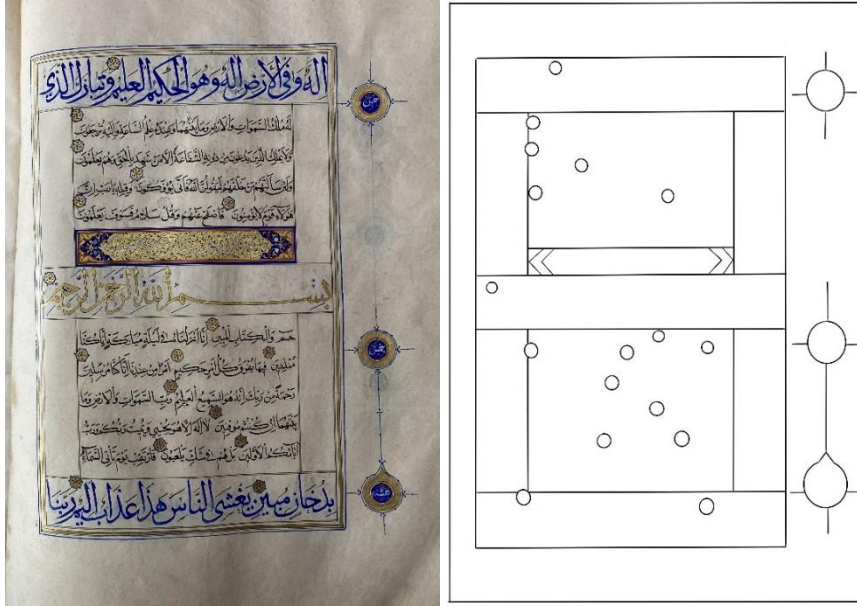 اله وفى الارض اله وهو الحكيم العليم وتبارك الذى
له ملك السموات والارض وما بينهما وعنده علم الساعة واليه ترجعون
ولا يملك الذين يدعون من دونه الشفاعة الا من شهد بالحق وهم يعلمون
ولئن سالتهم من خلقهم ليقولن الله فانى يوفكون وقيله يا رب ان
هولاء قوم لا يومنون فاصفح عنهم وقل سلام فسوف يعلمون
بسم الله الرحمن الرحيم
حم والكتاب المبين انا انزلناه فى ليلة مباركة انا كنا
منذرين فيها يفرق كل امر حكيم امرا من عندنا انا كنا مرسلين
رحمة من ربك انه هو السميع العليم رب السموات والارض وما
بينهما ان كنتم موقنين لا اله الا هو يحيى ويميت ربكم ورب
ابائكم الاولين بل هم فى شك يلعبون فارتقب يوم تاتى السماء
بدخان مبين يغشى الناس هذا عذاب اليم ربنا